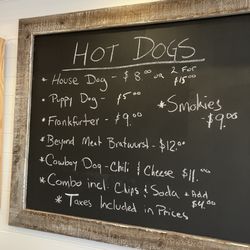 HOT DOGS
* House Dog - $8.00 or 2 For $15.00
* Puppy Dog - $5.00
* Smokies - $9.00
* Frankfurter - $9.00
* Beyond Meat Bratwurst - $12.00
* Cowboy Dog - Chili & Cheese $11.00
* Combo incl. Chips & Soda * Add $4.00
* Taxes Included in Prices